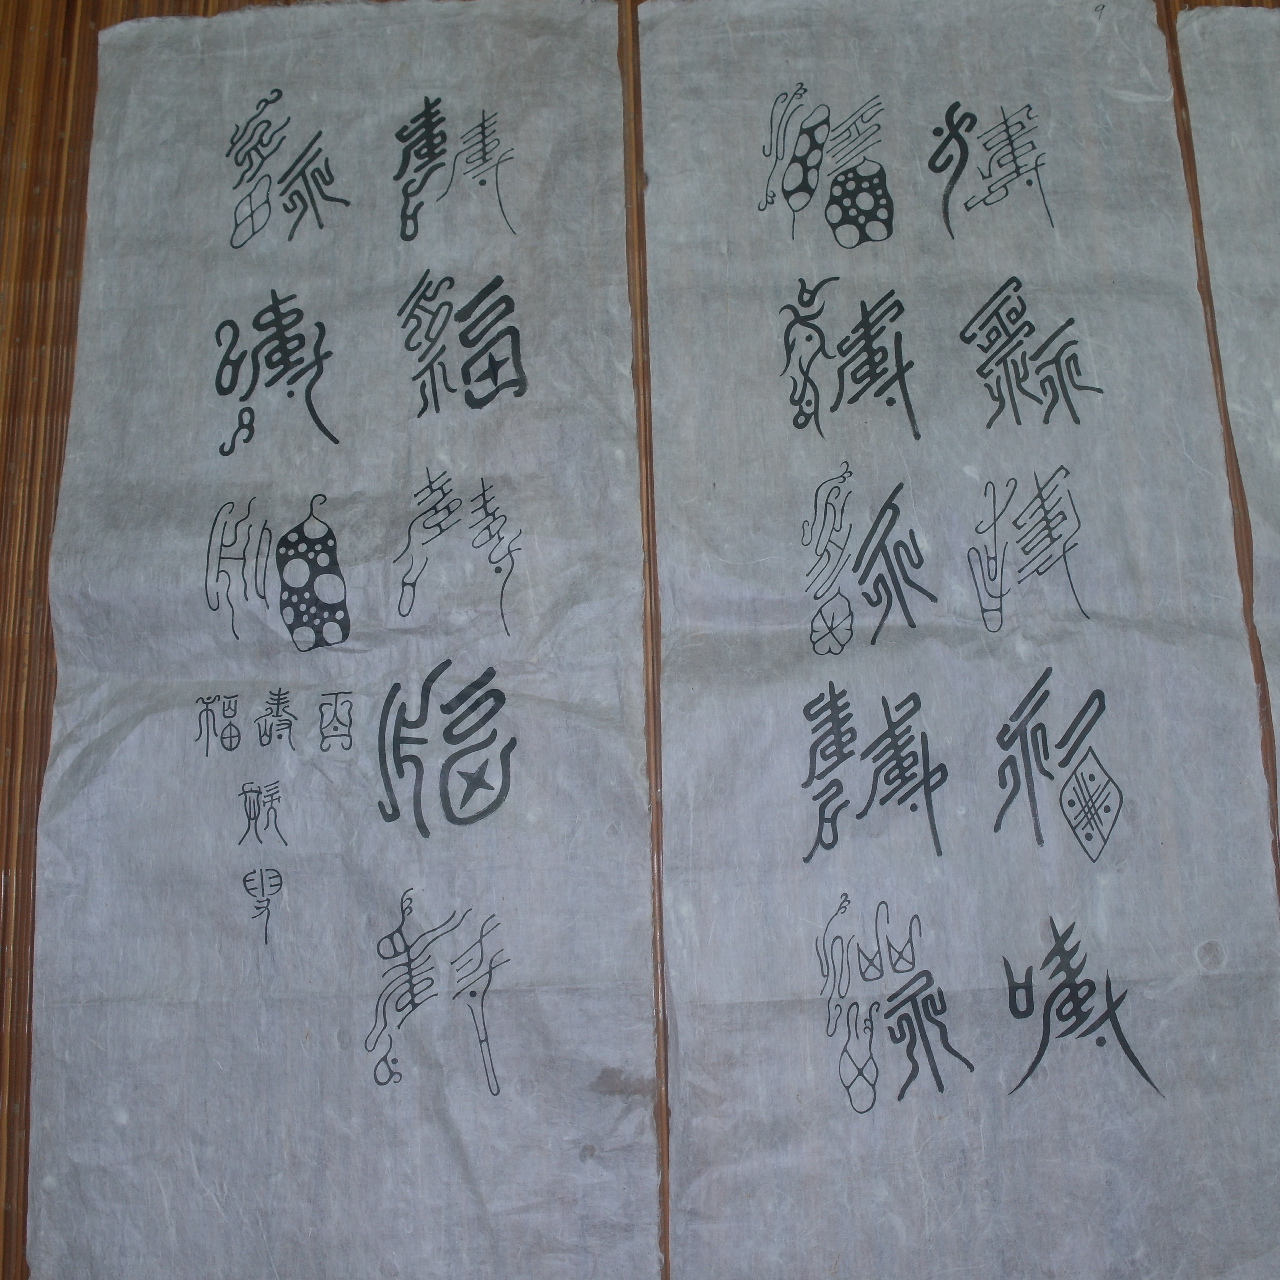 9
壽福壽福壽
福壽福壽福
壽福壽福壽
福壽福
百壽福
叟